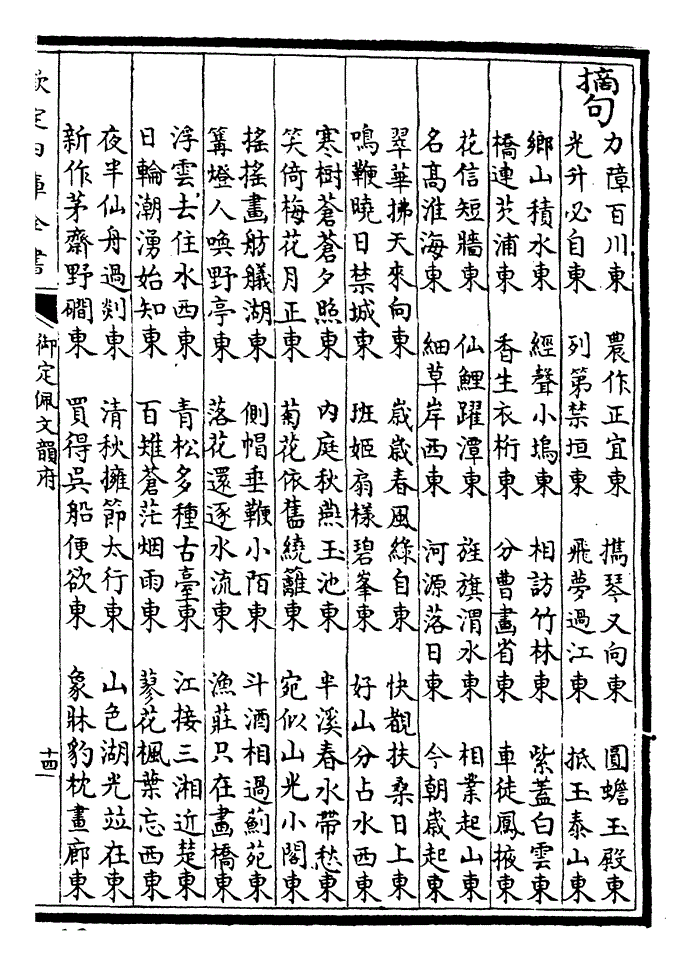 摘句
力障百川東 農作正宜東 攜琴又向東 圓蟾玉殿東
光升必自東 列第禁垣東 飛夢過江東 抵玉泰山東
鄉山積水東 經聲小塢東 相訪竹林東 紫蓋白雲東
橋連芡浦東 香生衣桁東 分曹畫省東 車徒鳳掖東
花信短牆東 仙鯉躍潭東 旌旗渭水東 相業起山東
名髙淮海東 細草岸西東 河源落日東 今朝嵗起東
翠華拂天來向東 嵗嵗春風綠自東 快覩扶桑日上東
鳴鞭曉日禁城東 班姬扇樣碧峯東 好山分占水西東
寒樹蒼蒼夕照東 内庭秋燕玉池東 半溪春水帶愁東
笑倚梅花月正東 菊花依舊繞籬東 宛似山光小閣東
搖搖畫舫艤湖東 側帽垂鞭小陌東 斗酒相過薊苑東
篝燈人喚野亭東 落花還逐水流東 漁莊只在畫橋東
浮雲去住水西東 青松多種古臺東 江接三湘近楚東
日輪潮湧始知東 百雉蒼茫烟雨東 蓼花楓葉忘西東
夜半仙舟過剡東 清秋擁節太行東 山色湖光竝在東
新作茅齋野磵東 買得吳船便欲東 象牀豹枕畫廊東
欽定四庫全書 御定佩文韻府 十四